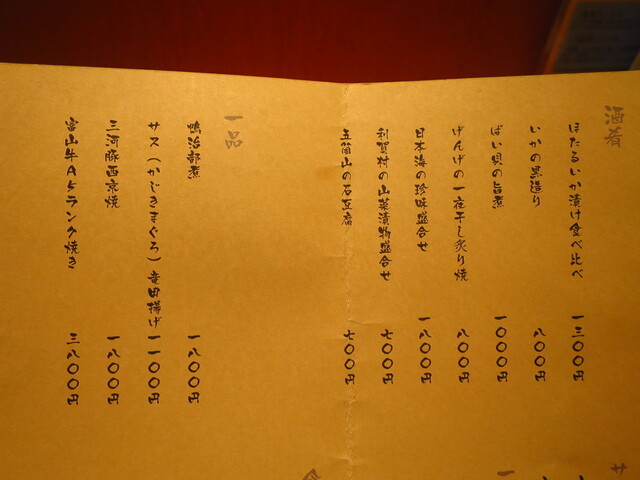 酒肴
ほたるいか漬け食べ比べ 一三〇〇円
いかの黒造り 八〇〇円
ばい貝の旨煮 一〇〇〇円
げんげの一夜干し炙り焼 八〇〇円
日本海の珍味盛合せ 一八〇〇円
利賀村の山菜漬物盛合せ 七〇〇円
五箇山の石豆腐 七〇〇円
一品
鴨治部煮 一八〇〇円
サス（かじきまぐろ）竜田揚げ 一一〇〇円
三河豚西京焼 一八〇〇円
富山牛A5ランク焼き 三八〇〇円
サ
一